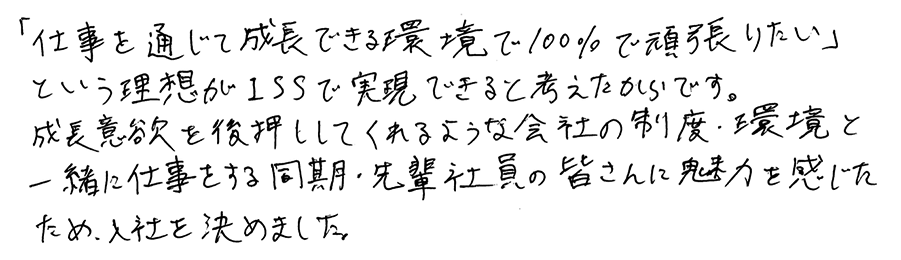 「仕事を通じて成長できる環境で100%で頑張りたい」
という理想がISSで実現できると考えたからです。
成長意欲を後押ししてくれるような会社の制度・環境と
一緒に仕事をする同期・先輩社員の皆さんに魅力を感じた
ため、入社を決めました。